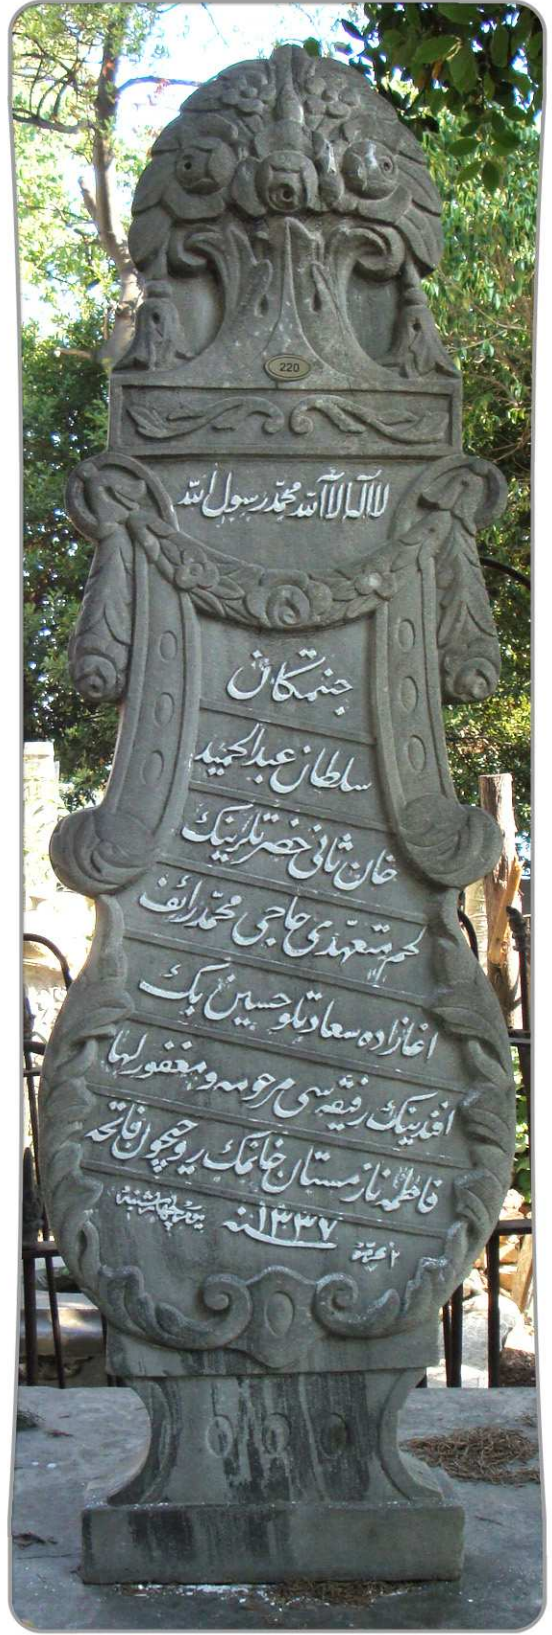 220
لا اله الا الله محمد رسول الله
جنتمكان
سلطان عبد الحميد
خان ثانى حضرتلرينك
لحم متعهدى حاجى محمد رائف
اغازاده سعادتلو حسين بك
افندينك رفيقه سى مرحومه و مغفور لها
فاطمه نازمستان خانمك روحيچون فاتحه
سنه ١٣٣٧